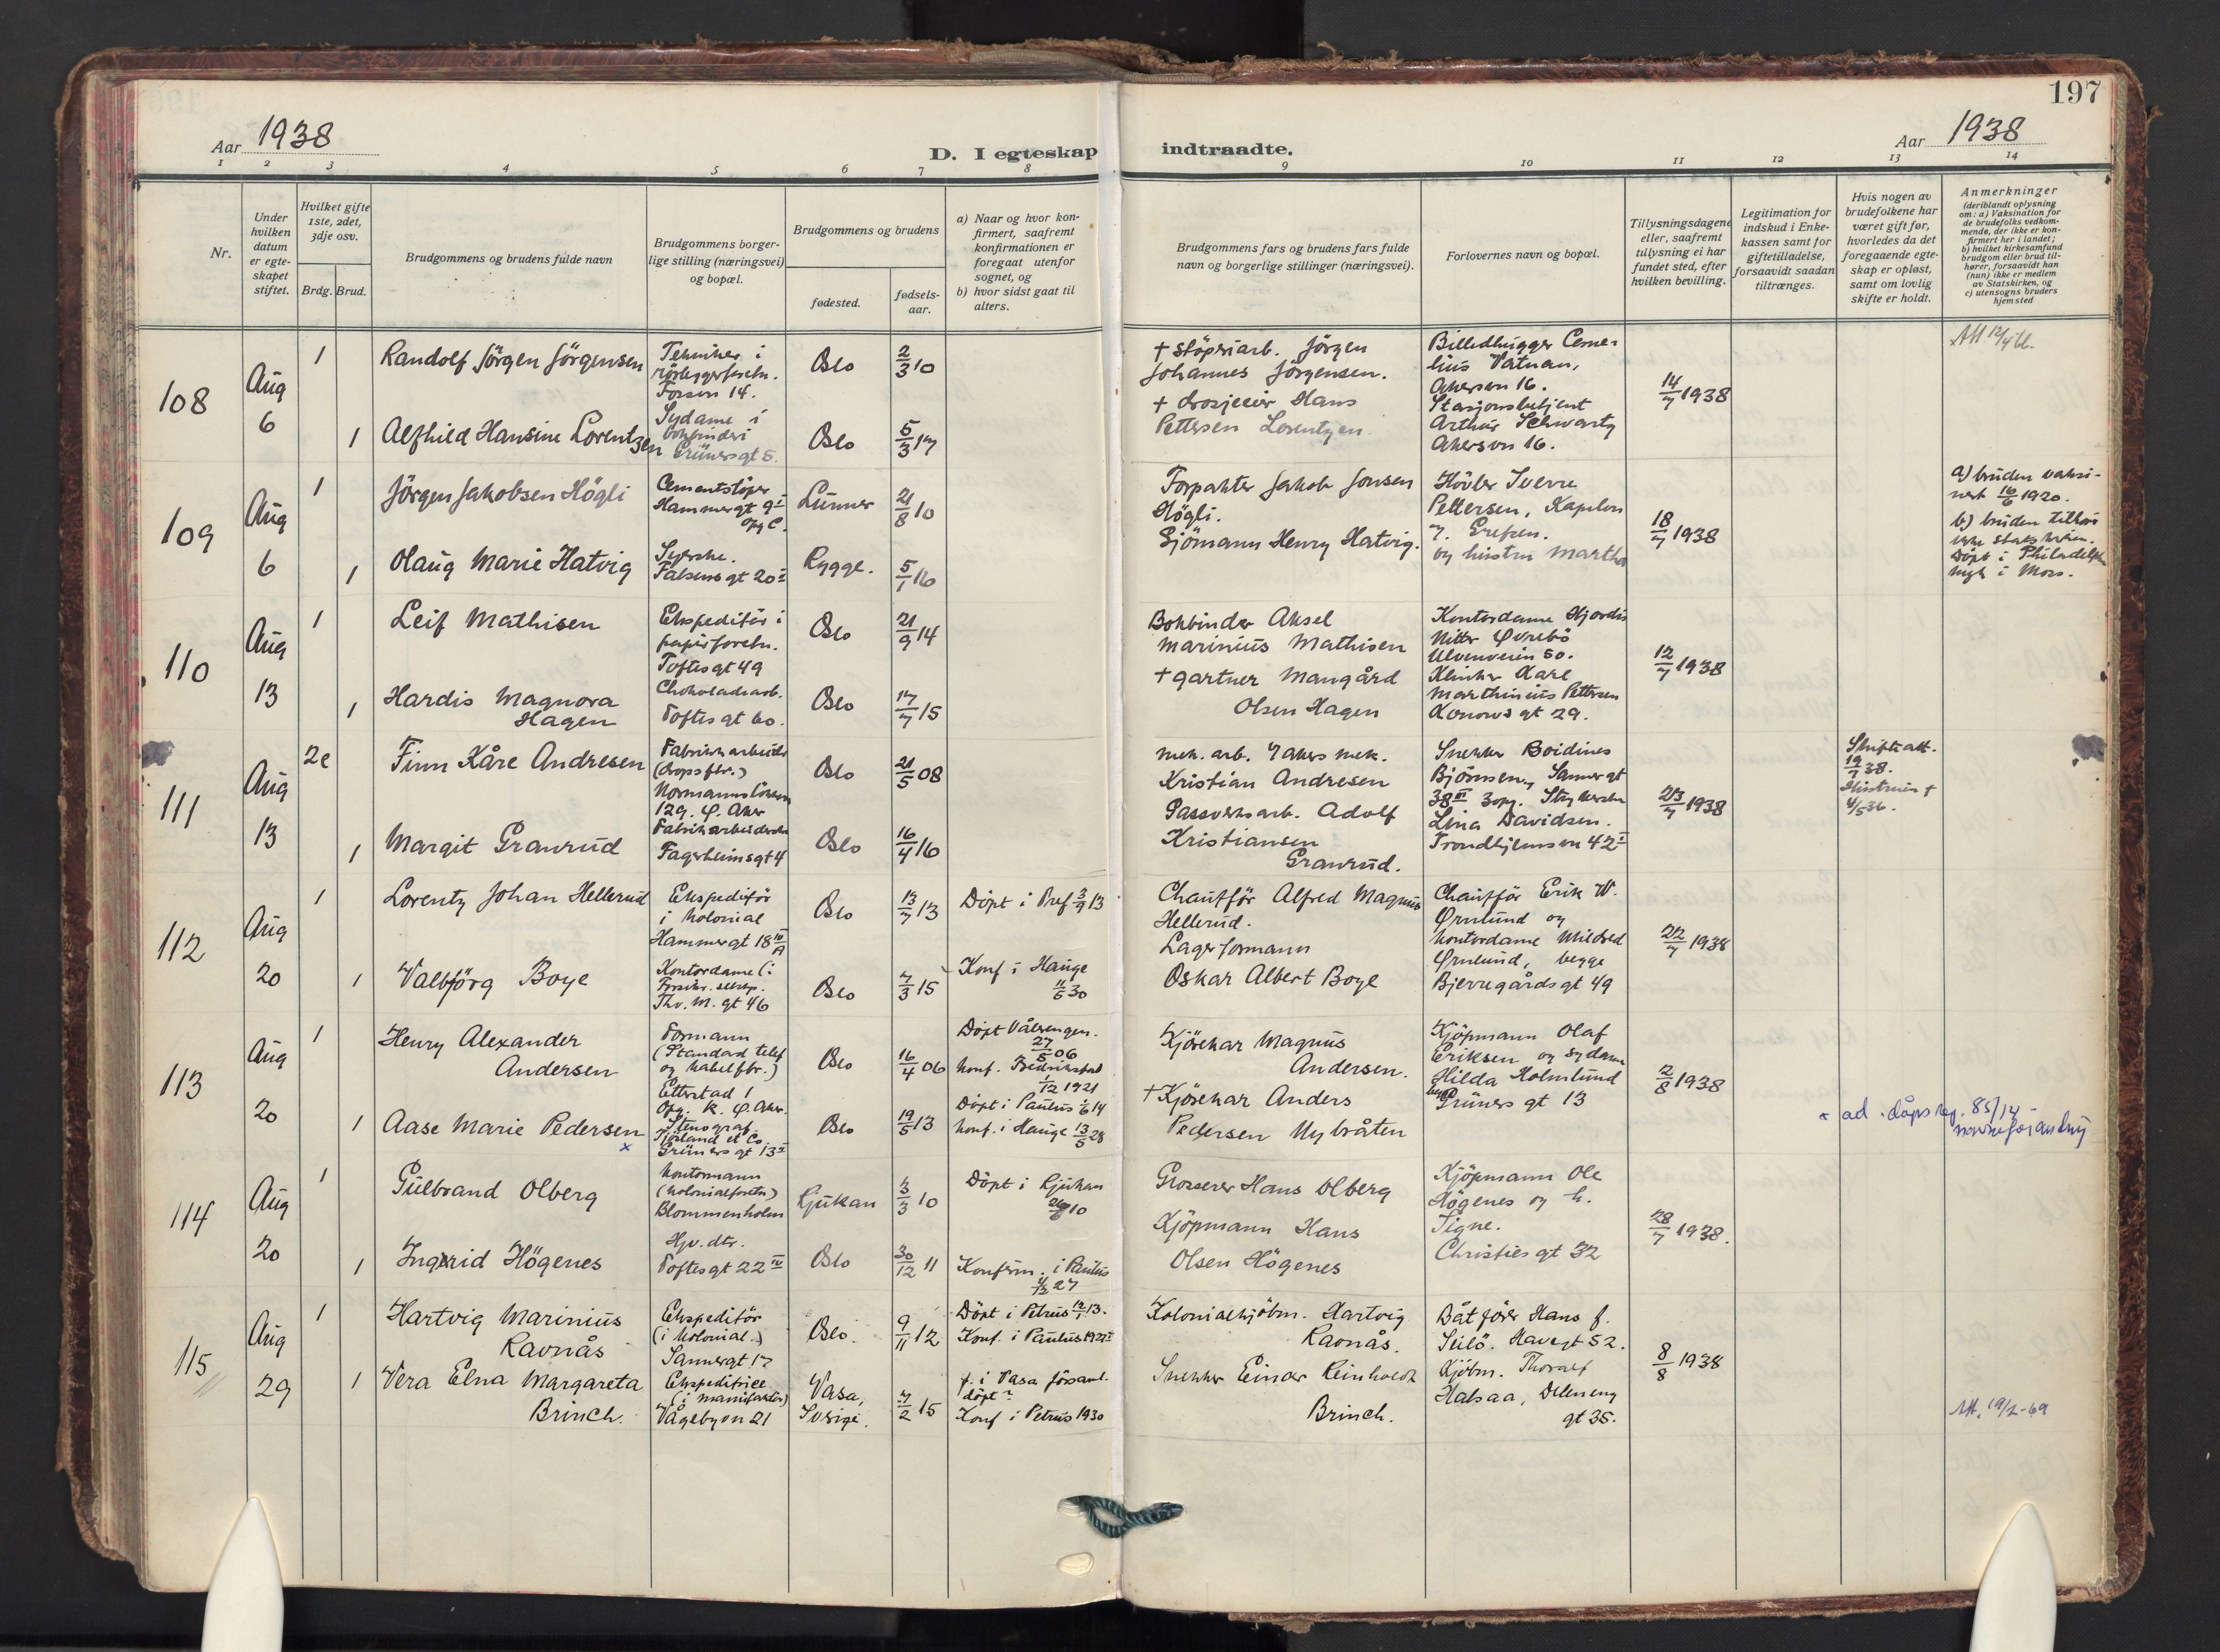 197
Aar 1938
D. I egteskap indtraadte.
Aar 1938
1 2 3 4 5 6 7 8 9 10 11 12 13 14
Nr.
Under hvilken datum er egteskapet stiftet.
Hvilket gifte 1ste, 2det, 3dje osv.
Brdg. Brud.
Brudgommens og brudens fulde navn
Brudgommens borgerlige stilling (næringsvei) og bopæl.
Brudgommens og brudens
fødested.
fødsels-aar.
a) Naar og hvor konfirmert, saafremt konfirmationen er foregaat utenfor sognet, og
b) hvor sidst gaat til alters.
Brudgommens fars og brudens fars fulde navn og borgerlige stillinger (næringsvei).
Forlovernes navn og bopæl.
Tillysningsdagene eller, saafremt tillysning ei har fundet sted, efter hvilken bevilling.
Legitimation for indskud i Enkekassen samt for giftetilladelse, forsaavidt saadan tiltrænges.
Hvis nogen av brudefolkene har været gift før, hvorledes da det foregaaende egteskap er opløst, samt om lovlig skifte er holdt.
Anmerkninger
(deriblandt oplysning om: a) Vaksination for de brudefolks vedkommende, der ikke er konfirmert her i landet;
b) hvilket kirkesamfund brudgom eller brud tilhører, forsaavidt han (hun) ikke er medlem av Statskirken, og
c) utensogns bruders hjemsted
108
Aug 6
1
Randolf Jörgen Jörgensen
Tekniker i
Fossvn 14.
Oslo
2/3 10
+ Støperiarb. Jörgen
Johannes Jörgensen.
Billedhugger Corne-
lius Vatnan,
Akersvn 16.
14/7 1938
1
Alfhild Hansine Lorentzen
Sydame i
bokbinderi
Grünersgt 5.
Oslo
5/3 17
+ drosjeeier Hans
Pettersen Lorentzen
Stasjonsbetjent
Arthur Schwartz
Akersvn 16.
109
Aug 6
1
Jörgen Jakobsen Högli
Cementstöper
Hammergt 9 I
opg C.
Lunner
21/8 10
Forpakter Jakob Jonsen
Högli.
Hövler Sverre
Pettersen, Kapelvn
7. Grefsen.
og hustru Martha
18/7 1938
a) bruden vaksi-
nert 16/6 1920.
b) bruden tilhör
ikke statskirken.
Döpt i Philadelphia
mgh i Moss.
1
Olaug Marie Hatvig
Syerske.
Falsensgt 20 I
Rygge.
5/1 16
Sjömann Henry Hatvig.
110
Aug 13
1
Leif Mathisen
Ekspeditör i
papirforetn.
Toftesgt 49
Oslo
21/9 14
Bokbinder Aksel
Marinius Mathisen
Kontordame Hjordis
Nitter Øvrebö
Ulvenveien 50.
12/7 1938
1
Hardis Magnora
Hagen
Chokoladearb.
Toftes gt 60.
Oslo
17/7 15
+ gartner Mangård
Olsen Hagen
Karl
Marthinius Pettersen
Konows gt 29.
111
Aug 13
2e
Finn Kåre Andresen
Fabrikkarbeider
(dropsfbr.)
Normannslökken
129. Ø. Aker
Oslo
21/5 08
mek. arb. v Akers mek.
Kristian Andresen
Snekker Boidines
Björnsen, Sannergt
38 III 3opg. Strykerske
Lina Davidsen.
Trondhjemsvn 42 I
23/7 1938
Skifteatt.
19/7 38.
Hustruen +
4/5 36.
1
Margit Granrud
Fabrikarbeiderske
Fagerheimsgt 4
Oslo
16/4 16
Gassverksarb. Adolf
Kristiansen
Granrud.
112
Aug 20
1
Lorentz Johan Hellerud
Ekspeditör
i kolonial
Hammergt 18 IV A
Oslo
13/7 13
Döpt i Pref 3/9 13
Chaufför Alfred Magnus
Hellerud.
Chaufför Erik W.
Ørnlund og
kontordame Mildred
Ørnlund, begge
Bjerregårds gt 49
22/7 1938
1
Valbjörg Boye
Kontordame (i
Forsikr. selsk.
Thv. M. gt 46
Oslo
7/3 15
Konf i Hauge
11/5 30
Lagerformann
Oskar Albert Boye
113
Aug 20
1
Henry Alexander
Andersen
Formann
(Standard telef
og kabelfbr.)
Etterstad 1
Opg. K. Ø. Aker.
Oslo
16/4 06
Döpt Vålerengen.
27/5 06
konf. Fredrikstad
1/12 1921
Kjörekar Magnus
Andersen.
Kjöpmann Olaf
Eriksen og sydame
Hilda Holmlund
begge
Grüners gt 13
2/8 1938
1
Aase Marie Pedersen x
Stenograf
Grüners gt 13 II
Oslo
19/5 13
Döpt i Paulus 1/6 14
konf. i Hauge 13/5 28
+ Kjörekar Anders
Pedersen Nybråten
x ad. dåpsreg. 85/14 -
navneforandring
114
Aug 20
1
Gulbrand Olberg
Kontormann
(kolonialforetn)
Blommenholm
Rjukan
3/3 10
Döpt i Rjukan
Grosserer Hans Olberg
Kjöpmann Ole
Högenes og h.
Signe.
Christies gt 32
28/7 1938.
1
Ingerid Högenes
Hjv. dtr.
Toftesgt 22 IV
Oslo
30/12 11
Konfirm. i Paulus
Kjöpmann Hans
Olsen Högenes
115
Aug 29
1
Hartvig Marinius
Ravnås
Ekspeditör
(i kolonial.)
Sannergt 17
Oslo.
9/11 12
Döpt i Petrus 12/1 13.
Konf. i Paulus
Kolonialkjöbm. Hartvig
Ravnås.
Båtförer Hans J.
Seilö. Havegt 52.
8/8 1938
1
Vera Elna Margareta
Brinch.
Ekspeditrice
(i manufaktur)
Vågebyvn 21
Vasa,
Sverige.
7/2 15
f. i Vasa församl.
döpt?
Konf i Petrus 1930
Snekker Einar Reinholdt
Brinch.
Kjöbm. Thoralf
Halsaa, Deleneng
gt 35.
Att. 19/2-69